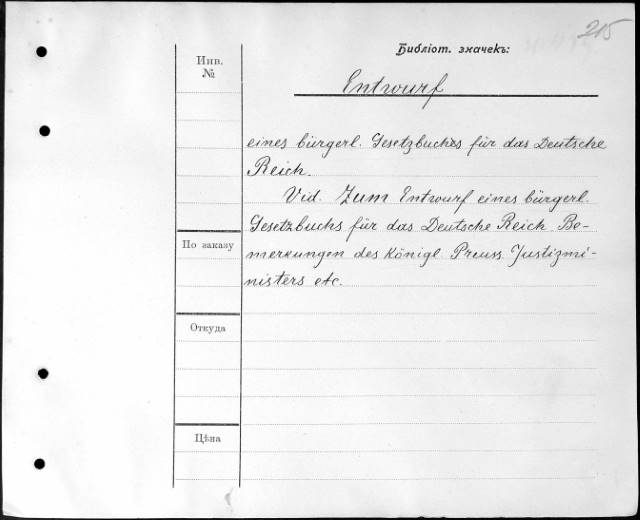 215
Библіот. значекъ:
Инв.
№
Entwurf
eines bürgerl. Gesetzbuches für das Deutsche
Reich.
Vid. Zum Entwurf eines bürgerl.
Gesetzbuchs für das Deutsche Reich Be-
По заказу
merkungen des Königl. Preuss. Justizmi-
nisters etc.
Откуда
Цѣна